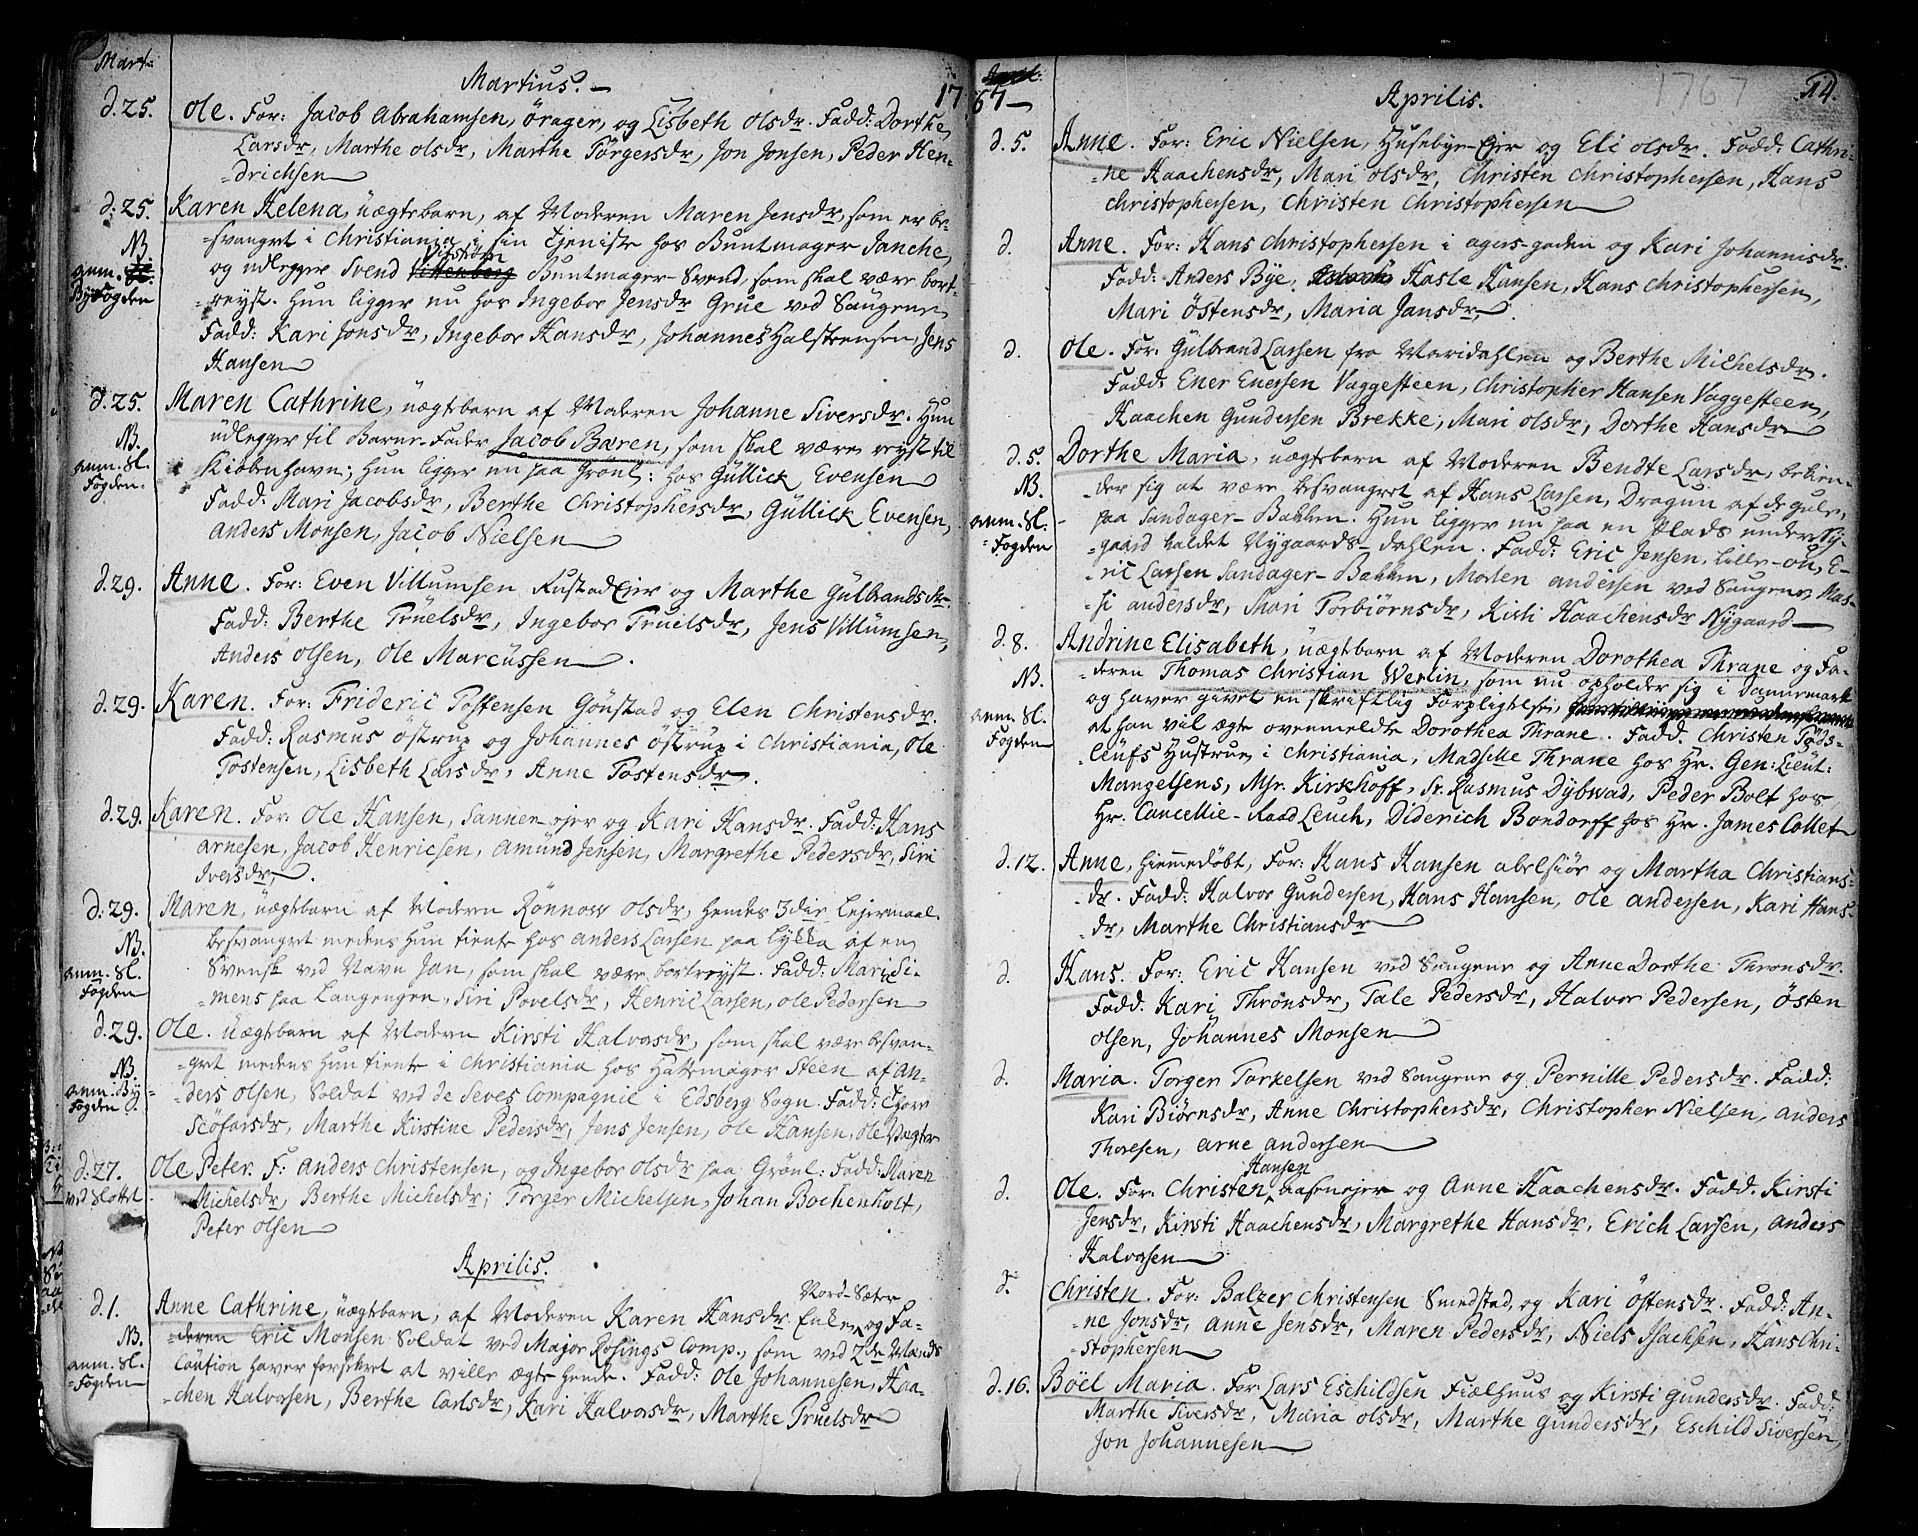 Mart:
Martius. 17
d. 25. Ole. For: Jacob Abrahamsen, Örager, og Lisbeth Olsdr. Fadd: Dorthe
Larsdr, Marthe Olsdr, Marthe Törgersdr, Jon Jonsen, Peder Hen-
drichsen
d: 25. Karen Helena, uægtebarn, af Moderen Maren Jensdr, som er be-
NB. -svangret i Christiania i sin Tieniste hos Buntmager Janche,
anm. og udlegger Svend Buntmager Svend, som skal være bort-
Byfogden -reyst. Hun ligger nu hos Ingebor Jensdr Grue ved Saugene
Fadd: Kari Jonsdr, Ingebor Hansdr, Johannes Halsteensen, Jens
Hansen
d. 25. Maren Cathrine, uægtebarn af Moderen Johanne Siversdr. Hun
NB. udlegger til Barne-Fader Jacob Bæren, som skal være reyst til
anm. Sl. Kiöbenhavn; Hun ligger nu paa Grönl: hos Gullick Evensen
Fogden. Fadd: Mari Jacobsdr, Berthe Christophersdr, Güllick Evensen,
Anders Monsen, Jacob Nielsen
d. 29. Anne. For: Even Villumsen Rustad Ejer og Marthe Gülbrandsdr.
Fadd: Berthe Trüelsdr, Ingebor Truelsdr, Jens Villümsen,
Anders Olsen, Ole Marcüssen.
d. 29. Karen. For: Frideric Tostensen Gönstad og Elen Christensdr.
Fadd: Rasmus Östrup og Johannes Östrup i Christiania, Ole
Tostensen, Lisbeth Larsdr, Anne Tostensdr.
d. 29. Karen. For: Ole Hansen, Sannerejer og Kari Hansdr. Fadd: Hans
Arnesen, Jacob Henricsen, Amund Jensen, Margrethe Pedersdr, Siri
Iversdr.
d. 29. Maren, uægtebarn af Modern Rönnow Olsdr, hendes 3die Lejermaal.
NB. besvangret medens hun tiente hos Anders Larsen paa Lykka af en
anm. Sl. Svensk ved Navn Jan, som skal være bortreyst. Fadd: Mari Si-
Fogden -mens paa Langengen, Siri Povelsdr, Henric Larsen, Ole Pedersen
d. 29. Ole. uægtebarn af Modern Kirsti Halvorsdr, som skal være besvan-
NB. -gret medens hun tiente i Christiania hos Hattemager Steen af An-
anm. By -ders Olsen, Soldat ved de Seves Compagnie i Edsberg Sogn. Fadd: Thore
Fogden. Scöfarsdr, Marthe Kirstine Pedersdr, Jens Jensen, Ole Hansen, Ole Vægter
d. 27. Ole Peter. F: Anders Christensen, og Ingebor Olsdr paa Grönl: Fadd: Maren
ved Slottet. Michelsdr, Berthe Michelsdr; Törger Michelsen, Johan Bochenholt,
Peter Olsen
Aprilis.
Nord-Sæter
d. 1. Anne Cathrine, uægtebarn, af Moderen Karen Hansdr Enke, og Fa-
NB. -deren Eric Monsen Soldat ved Major Rosings Comp., som ved 2de Mands
anm. Sl. Caution haver forsikret at ville ægte hende. Fadd: Ole Johannesen, Haa-
-Fogden -chen Halvorsen, Berthe Carlsdr, Kari Halvorsdr, Marthe Truelsdr
67 Aprilis. 1767 14.
d. 5. Anne. For: Eric Nielsen, Husebye-Ejer og Eli Olsdr. Fadd: Cathri-
-ne Haachensdr, Mari Olsdr, Christen Christophersen, Hans
Christophersen, Christen Christophersen
d. Anne. For: Hans Christophersen i Agers-gaden og Kari Johannisdr.
Fadd: Anders Bye, Hasle Hansen, Hans Christophersen,
Mari Östensdr, Maria Jansdr.
d. Ole. For: Gülbrand Larsen fra Maridahlen og Berthe Michelsdr.
Fadd: Ener Enersen Vaggesteen, Christopher Hansen Vaggesteen,
Haachen Gundersen Brekke, Mari Olsdr, Dorthe Hansdr
d. 5. Dorthe Maria, uægtebarn af Moderen Bendte Larsdr, bekien-
NB. -der sig at være besvangret af Hans Larsen, Dragun af de gule,
anm. Sl. paa Sandager-Bakken. Hun ligger nu paa en Plads under Ny-
-Fogden -gaard kaldet Nygaards-dahlen. Fadd: Eric Jensen, Lille-on, E-
-ric Larsen Sandager-Bakken, Morten Andersen ved Saugene, Mas-
-si Andersdr, Mari Torbiörnsdr, Kirsti Haachensdr Nygaard
d. 8. Andrine Elisabeth, uægtebarn af Moderen Dorothea Thrane og Fa-
NB. -deren Thomas Christian Werlin, som nu opholder sig i Dannemark
anm. Sl. og haver givet en skriftlig Forpligtelse,
Fogden at han vil ægte ovenmeldte Dorothea Thrane. Fadd: Christen Töds-
-leüfs Hustrue i Christiania, Madselle Thrane hos Hr. Gen: Lieut:
Mangelsens, Msr. Kirkhoff, Sr. Rasmus Dybwad, Peder Bolt hos
Hr. Cancellie-Raad Leuch, Diderich Bondorff hos Hr. James Collet
d. 12. Anne, hiemmedöbt, For: Hans Hansen Abelsiör og Martha Christians-
-dr. Fadd: Halvor Gundersen, Hans Hansen, Ole Andersen, Kari Hans-
-dr, Marthe Christiansdr
d. Hans. For: Eric Hansen ved Saugene og Anne Dorthe Thronsdr.
Fadd: Kari Thronsdr, Tale Pedersdr, Halvor Pedersen, Östen
Olsen, Johannes Monsen
d. Maria. Torger Torkelsen ved Saugene og Pernille Pedersdr. Fadd:
Kari Biörnsdr, Anne Christophersdr, Christopher Nielsen, Anders
Thoresen, Arne Andersen
Hansen
d. Ole. For: Christen Aasenejer og Anne Haachensdr. Fadd. Kirsti
Jensdr, Kirsti Haachensdr, Margrethe Hansdr, Erich Larsen, Anders
Halvorsen
d. Christen. For: Balzer Christensen Smedstad, og Kari Östensdr. Fadd: An-
-ne Jonsdr, Anne Jensdr, Maren Pedersdr, Niels Isachsen, Hans Chri-
-stophersen
d. 16. Böel Maria. For: Lars Eschildsen Fiælhuus og Kirsti Gundersdr. Fadd:
Marthe Siversdr, Maria Olsdr, Marthe Gundersdr, Eschild Siversen,
Jon Johannesen